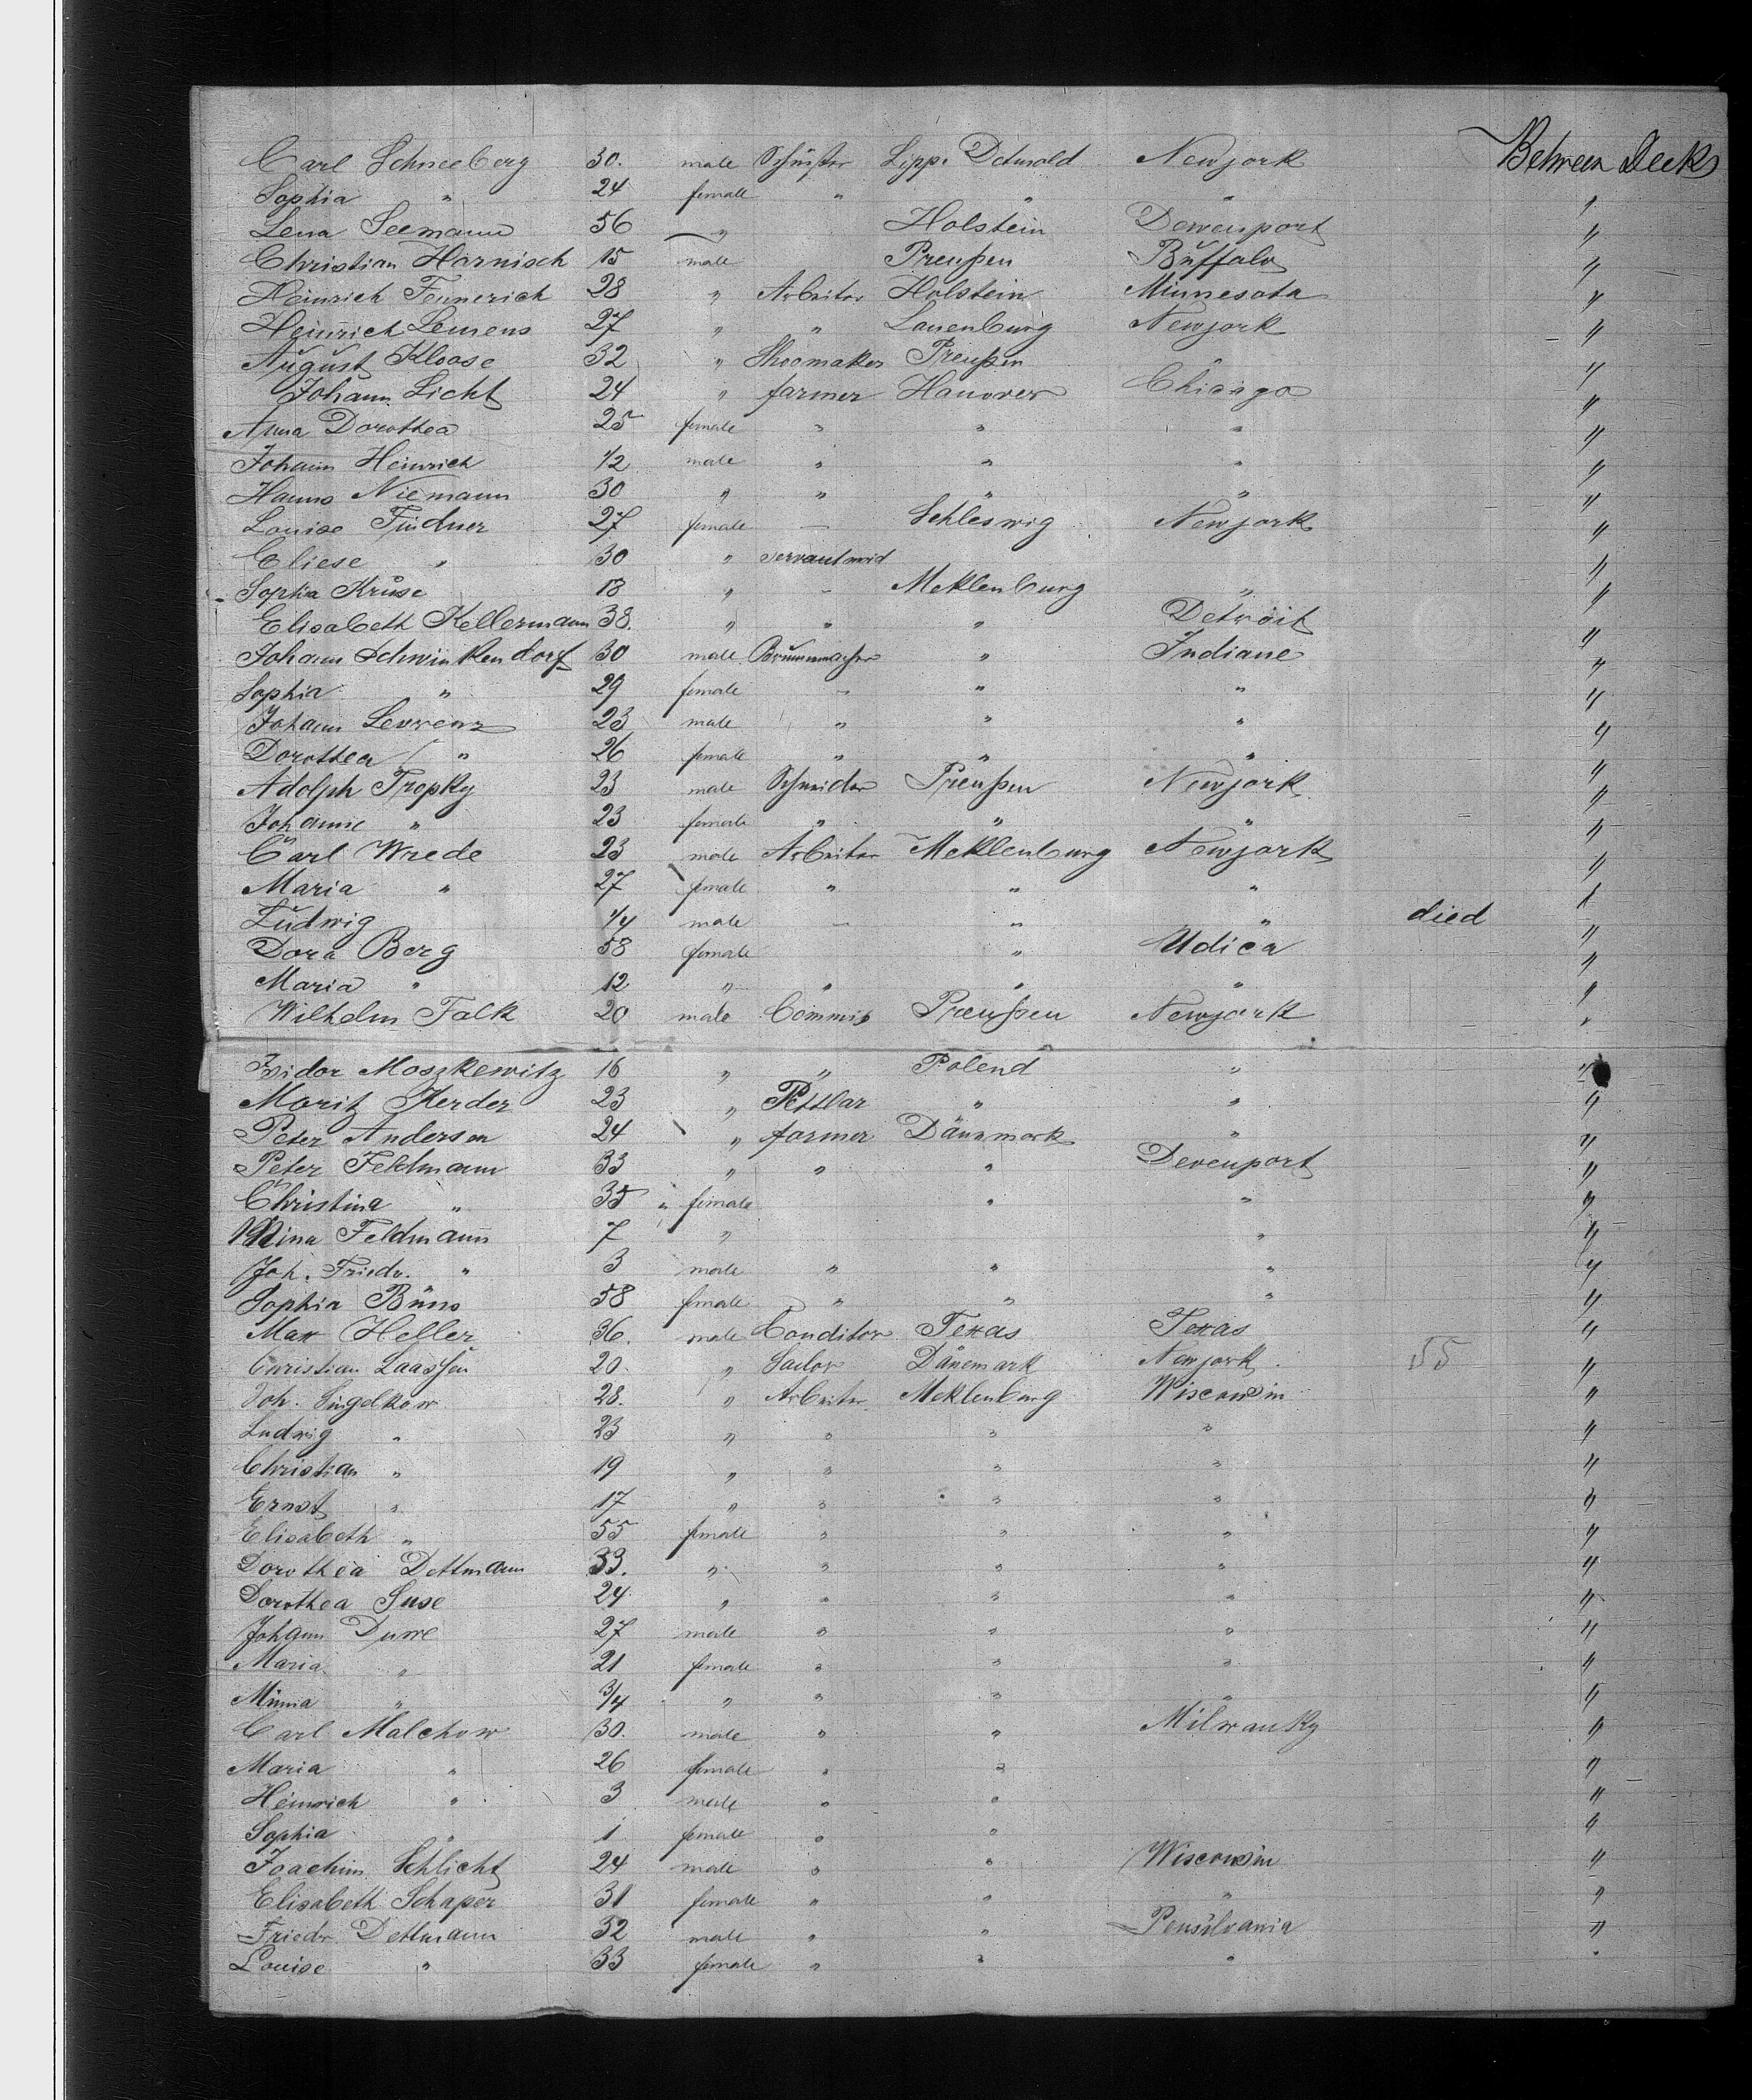 Carl Schneeberg 30. male Schuster Lippe Detmold Newjork Between Decks
Sophia " 24 female " " " "
Lena Seemann 56 " Holstein Dewenport "
Christian Harnisch 15 male Preußen Buffalo "
Heinrich Fennerich 28 " Arbeiter Holstein Minnesota "
Heinrich Siemens 27 " " Lauenburg Newjork "
August Kloose 32 " Shoomaker Preußen "
Johann Licht 24 " farmer Hanover Chicago "
Anna Dorothea 25 female " " " "
Johann Heinrich 1/2 male " " " "
Hanns Niemann 30 " " " " "
Louise Findner 27 female — Schleswig Newjork "
Eliese " 30 " servantmaid "
Sophia Kruse 18 " - Meklenburg " "
Elisabeth Kellermann 38. " " " Detroit "
Johann Schwinkendorf 30 male " Indiane "
Sophia " 29 female - " " "
Johann Lewrenz 23 male " " " "
Dorothea " 26 female " " " "
Adolph Tropky 23 male Schneider Preußen Newjork "
Johanne " 23 female " " " "
Carl Wrede 23 male Arbeiter Meklenburg Newjork "
Maria " 27 female " " " "
Ludwig 1/4 male — " " died "
Dora Berg 58 female " Udica "
Maria " 12 " " " " "
Wilhelm Falk 20 male Commis Preußen Newjork "
Isidor Moszkewitz 16 " " Polend " "
Moritz Kerder 23 " " " "
Peter Andersen 24 " farmer Dännmark " "
Peter Feldmann 33 " " " Devenport "
Christina " 35 " female " " "
Mina Feldmann 7 " " "
Joh. Friedr. " 3 male " " " "
Sophia Büns 58 female " " " "
Max Heller 36. male Conditor Texas Texas "
Christian Laassen 20. " Sailor Dänemark Newjork 55 "
Joh. Singelkow 28. " Arbeiter Meklenburg Wisconsin "
Ludwig " 23 " " " " "
Christian " 19 " " " " "
Ernst " 17 " " " " "
Elisabeth " 55 female " " " "
Dorothea Dettmann 33. " " " " "
Dorothea Suse 24 " " " " "
Johann Duwe 27 male " " " "
Maria " 21 female " " " "
Minna " 3/4 " " " " "
Carl Malchow 30. male " " Milwauky "
Maria " 26 female " " "
Heinrich " 3 male " " "
Sophia " 1 female " " "
Joachim Schlicht 24 male " " Wisconsin "
Elisabeth Schaper 31 female " " " "
Friedr. Dettmann 32 male " " Pensilvania "
Louise " 33 female " " " "